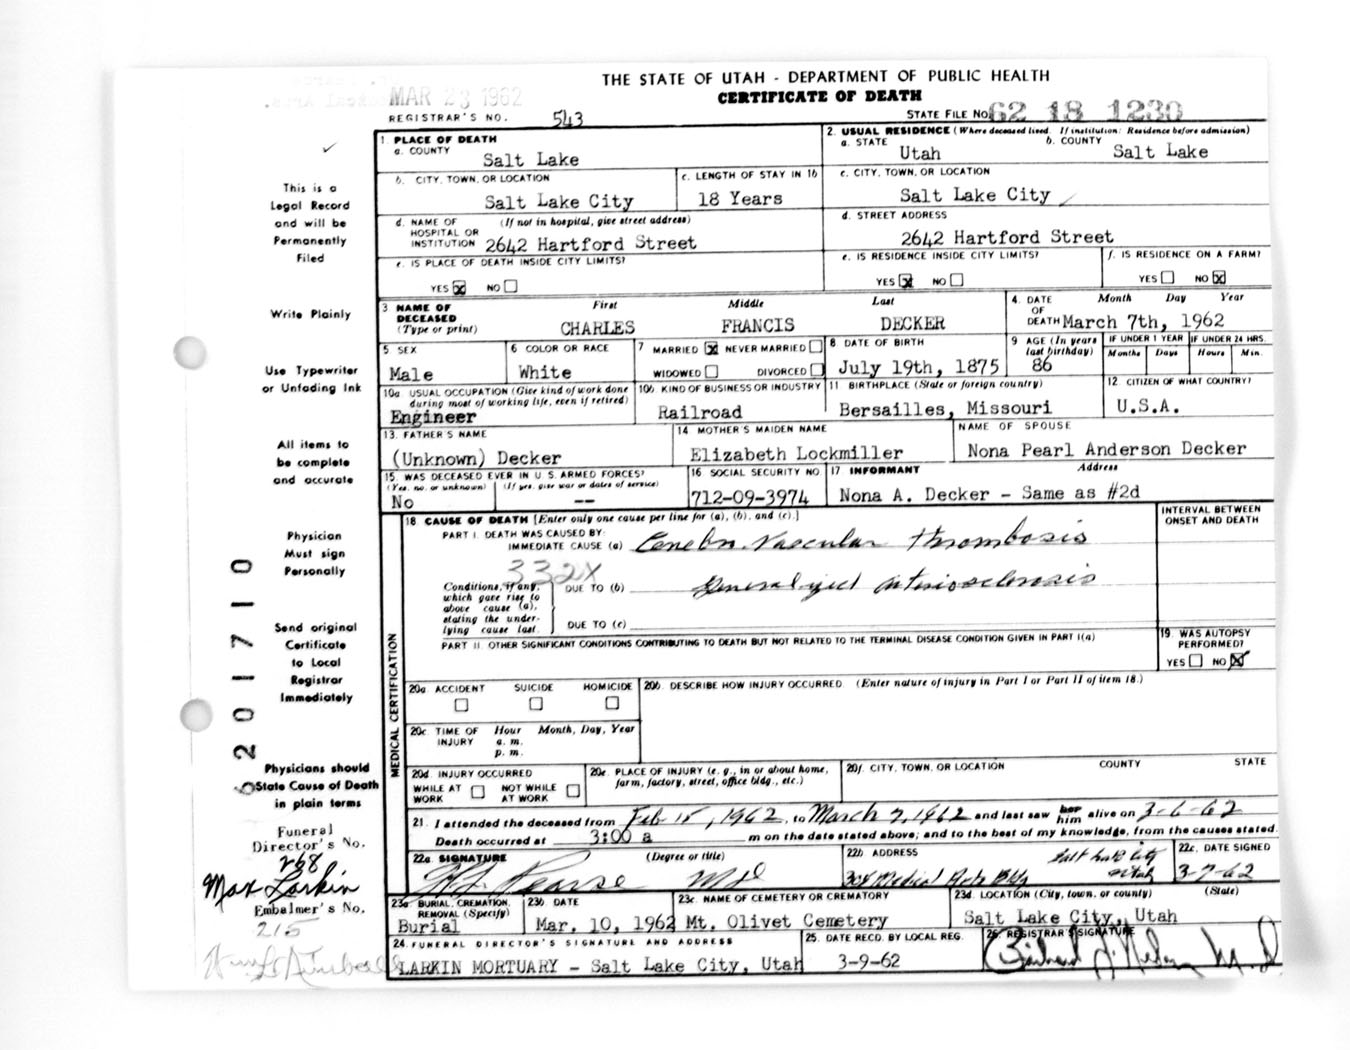 THE STATE OF UTAH - DEPARTMENT OF PUBLIC HEALTH
CERTIFICATE OF DEATH
MAR 23 1962
REGISTRAR'S NO. 543
STATE FILE NO. 62 18 1230
This is a
Legal Record
and will be
Permanently
Filed
Write Plainly
Use Typewriter
or Unfading Ink
All items to
be complete
and accurate
Physician
Must sign
Personally
Send original
Certificate
to Local
Registrar
Immediately
Physicians should
State Cause of Death
in plain terms
Funeral
Director's No.
268
Max Larkin
Embalmer's No.
215
6201710
1. PLACE OF DEATH
a. COUNTY Salt Lake
2. USUAL RESIDENCE (Where deceased lived. If institution: Residence before admission)
a. STATE Utah b. COUNTY Salt Lake
b. CITY, TOWN, OR LOCATION Salt Lake City
c. LENGTH OF STAY IN 1b 18 Years
c. CITY, TOWN, OR LOCATION Salt Lake City
d. NAME OF HOSPITAL OR INSTITUTION (If not in hospital, give street address) 2642 Hartford Street
d. STREET ADDRESS 2642 Hartford Street
e. IS PLACE OF DEATH INSIDE CITY LIMITS?
YES x NO
e. IS RESIDENCE INSIDE CITY LIMITS?
YES x NO
f. IS RESIDENCE ON A FARM?
YES NO x
3 NAME OF DECEASED (Type or print) First CHARLES Middle FRANCIS Last DECKER
4. DATE OF DEATH Month Day Year March 7th, 1962
5 SEX Male
6 COLOR OR RACE White
7 MARRIED x NEVER MARRIED WIDOWED DIVORCED
8 DATE OF BIRTH July 19th, 1875
9 AGE (In years last birthday) 86
IF UNDER 1 YEAR Months Days
IF UNDER 24 HRS. Hours Min.
10a. USUAL OCCUPATION (Give kind of work done during most of working life, even if retired) Engineer
10b. KIND OF BUSINESS OR INDUSTRY Railroad
11 BIRTHPLACE (State or foreign country) Bersailles, Missouri
12. CITIZEN OF WHAT COUNTRY? U.S.A.
13. FATHER'S NAME (Unknown) Decker
14 MOTHER'S MAIDEN NAME Elizabeth Lockmiller
NAME OF SPOUSE Nona Pearl Anderson Decker
15. WAS DECEASED EVER IN U.S. ARMED FORCES?
(Yes, no, or unknown) (If yes, give war or dates of service)
No --
16 SOCIAL SECURITY NO. 712-09-3974
17 INFORMANT Address Nona A. Decker - Same as #2d
MEDICAL CERTIFICATION
18 CAUSE OF DEATH [Enter only one cause per line for (a), (b), and (c).]
INTERVAL BETWEEN ONSET AND DEATH
PART I. DEATH WAS CAUSED BY:
IMMEDIATE CAUSE (a) Cerebro Vascular thrombosis
332X
Conditions, if any, which gave rise to above cause (a), stating the underlying cause last.
DUE TO (b) Generalized arteriosclerosis
DUE TO (c)
PART II. OTHER SIGNIFICANT CONDITIONS CONTRIBUTING TO DEATH BUT NOT RELATED TO THE TERMINAL DISEASE CONDITION GIVEN IN PART I(a)
19. WAS AUTOPSY PERFORMED?
YES NO x
20a. ACCIDENT SUICIDE HOMICIDE
20b. DESCRIBE HOW INJURY OCCURRED. (Enter nature of injury in Part I or Part II of item 18.)
20c. TIME OF INJURY Hour a. m. p. m. Month, Day, Year
20d. INJURY OCCURRED
WHILE AT WORK NOT WHILE AT WORK
20e. PLACE OF INJURY (e. g., in or about home, farm, factory, street, office bldg., etc.)
20f. CITY, TOWN, OR LOCATION COUNTY STATE
21. I attended the deceased from Feb 15, 1962, to March 7, 1962 and last saw her him alive on 3-6-62
Death occurred at 3:00 a m on the date stated above; and to the best of my knowledge, from the causes stated.
22a. SIGNATURE (Degree or title) Pearse MD
22b ADDRESS 304 Medical Arts Bldg Salt Lake City Utah
22c. DATE SIGNED 3-7-62
23a BURIAL, CREMATION, REMOVAL (Specify) Burial
23b. DATE Mar. 10, 1962
23c. NAME OF CEMETERY OR CREMATORY Mt. Olivet Cemetery
23d. LOCATION (City, town, or county) (State) Salt Lake City, Utah
24. FUNERAL DIRECTOR'S SIGNATURE AND ADDRESS
LARKIN MORTUARY - Salt Lake City, Utah
25. DATE RECD. BY LOCAL REG. 3-9-62
26. REGISTRAR'S SIGNATURE